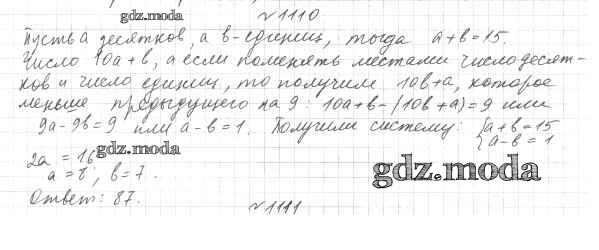 gdz.moda
№1110
Пусть а десятков, а в-единиц, тогда а+в=15.
Число 10а+в, а если поменять местами число десят-
ков и число единиц, то получим 10в+а, которое
меньше предыдущего на 9: 10а+в-(10в+а)=9 или
9а-9в=9 или а-в=1. Получили систему: {а+в=15
а-в=1
2а=16 gdz.moda
а=8, в=7.
gdz.moda
Ответ: 87.
№1111